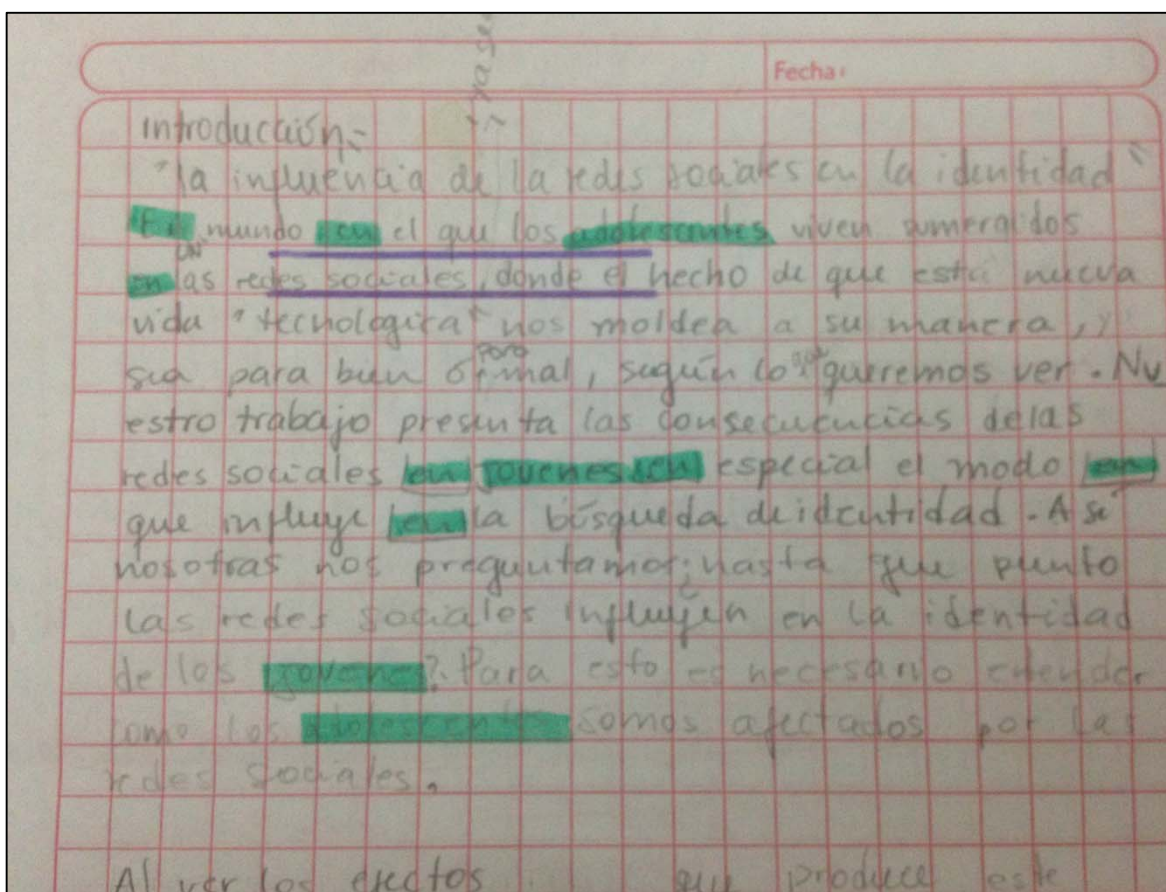 Fecha:
introducción:-
"la influencia de la redes sociales en la identidad"
mundo en el que los adolescentes viven sumergidos
en las redes sociales, donde el hecho de que esta nueva
vida "tecnologica" nos moldea a su manera, y
sea para bien o para mal, según lo que queremos ver. Nu
estro trabajo presenta las consecuencias delas
redes sociales en jovenes en especial el modo en
que influye en la búsqueda de identidad. Asi
nosotras nos preguntamos ¿hasta que punto
las redes sociales influyen en la identidad
de los jovenes?. Para esto es necesario entender
como los adolescentes somos afectados por las
redes sociales.
Al ver los efectos que produce este